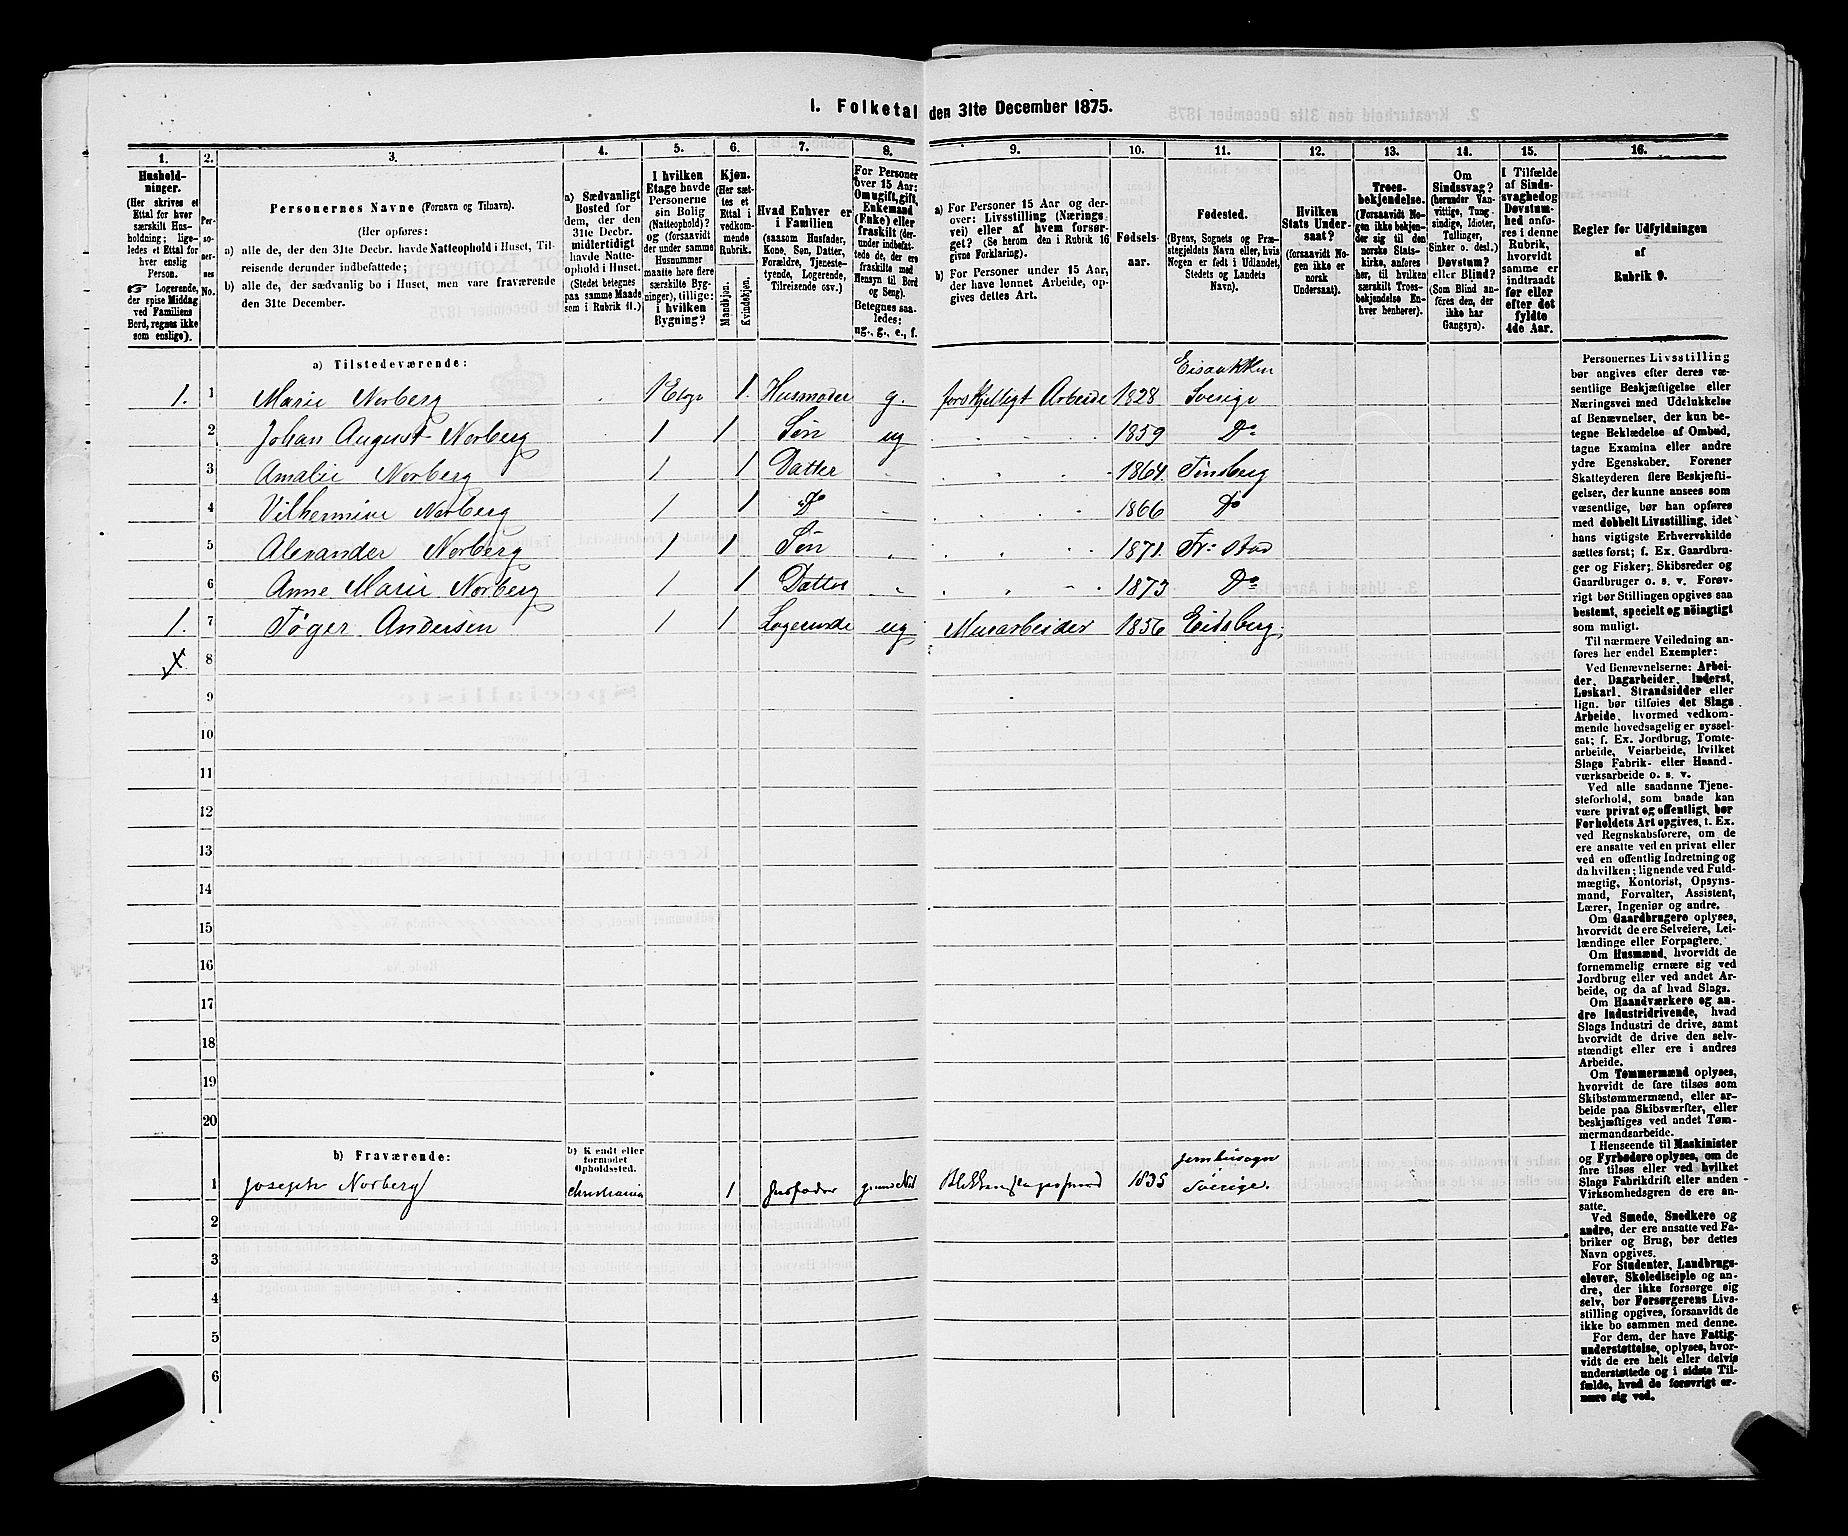 1. Folketal den 31te December 1875.
1. 2. 3. 4. 5. 6. 7. 8. 9. 10. 11. 12. 13. 14. 15. 16.
Hushold-
ninger.
(Her skrives et
Ettal for hver
særskilt Hus-
holdning; lige-
ledes et Ettal for
hver enslig
Person.
☞ Logerende,
der spise Middag
ved Familiens
Bord, regnes ikke
som enslige).
Per-
so-
ner-
nes
No.
Personernes Navne (Fornavn og Tilnavn).
(Her opføres:
a) alle de, der den 31te Decbr. havde Natteophold i Huset, Til-
reisende derunder indbefattede;
b) alle de, der sædvanlig bo i Huset, men vare fraværende
den 31te December.
a) Sædvanligt
Bosted for
dem, der den
31te Decbr.
midlertidigt
havde Natte-
ophold i Huset.
(Stedet betegnes
paa samme Maade
som i Rubrik 11.)
I hvilken
Etage havde
Personerne
sin Bolig
(Natteophold)?
og (forsaavidt
der under samme
Husnummer
maatte høre flere
særskilte Byg-
ninger), tillige:
i hvilken
Bygning?
Kjøn.
(Her sæt-
tes et
Ettal i
vedkom-
mende
Rubrik.
Mandkjøn.
Kvindekjøn.
Hvad Enhver er
i Familien
(saasom Husfader,
Kone, Søn, Datter,
Forældre, Tjeneste-
tyende, Logerende,
Tilreisende osv.)
For Personer
over 15 Aar:
Om ugift, gift,
Enkemand
(Enke) eller
fraskilt (der-
under indbefat-
tede de, der ere
fraskilte med
Hensyn til Bord
og Seng).
Betegnes saa-
ledes:
ug., g., e., f.
a) For Personer 15 Aar og der-
over: Livsstilling (Nærings-
vei) eller af hvem forsør-
get? (Se herom den i Rubrik 16
givne Forklaring).
b) For Personer under 15 Aar,
der have lønnet Arbeide, op-
gives dettes Art.
Fødsels-
aar.
Fødested.
(Byens, Sognets og Præ-
stegjeldets Navn eller, hvis
Nogen er født i Udlandet,
Stedets og Landets
Navn).
Hvilken
Stats Under-
saat?
(forsaavidt No-
gen ikke er
norsk
Undersaat).
Troes-
bekjendelse.
(Forsaavidt No-
gen ikke bekjen-
der sig til den
norske Stats-
kirke, anføres
her, til hvilken
særskilt Troes-
bekjendelse En-
hver henhører).
Om
Sindssvag?
(herunder Van-
vittige, Tung-
sindige, Idioter,
Tullinger,
Sinker o. desl.)
Døvstum?
eller Blind?
(Som Blind an-
føres den, der
ikke har
Gangsyn).
I Tilfælde
af Sinds-
svaghed og
Døvstum-
hed anfø-
res i denne
Rubrik,
hvorvidt
samme er
indtraadt
før eller
efter det
fyldte
4de Aar.
Regler for Udfyldningen
af
Rubrik 9.
a) Tilstedeværende:
1. 1 Marie Norberg 1 Etage 1. Husmoder g. forskjelligt Arbeide 1828 Sverige
2 Johan August Norberg 1 1 Søn ug 1859 Do
3 Amalie Norberg 1 1 Datter 1864. Tønsberg
4 Vilhermine Norberg 1 1 Do 1866 Do
5 Alexander Norberg 1 1 Søn 1871. Fr: stad
6 Anne Marie Norberg 1 1 Datter 1873 Do
1. 7 Tøger Andersen 1 1 Logerende ug Murarbeider 1856 Eidsberg.
x 8
9
10
11
12
13
14
15
16
17
18
19
20
b) Fraværende:
b) Kjendt eller
formodet
Opholdssted.
1 Joseph Norberg christiania 1 husfader 1835 Sverige.
2
3
4
5
6
Personernes Livsstilling
bør angives efter deres væ-
sentlige Beskjæftigelse eller
Næringsvei med Udelukkelse
af Benævnelser, der kun be-
tegne Beklædelse af Ombud,
tagne Examina eller andre
ydre Egenskaber. Forener
Skatteyderen flere Beskjæfti-
gelser, der kunne ansees som
væsentlige, bør han opføres
med dobbelt Livsstilling, idet
hans vigtigste Erhvervskilde
sættes først; f. Ex. Gaardbru-
ger og Fisker; Skibsreder og
Gaardbruger o. s. v. Forøv-
rigt bør Stillingen opgives saa
bestemt, specielt og nøiagtigt
som muligt.
Til nærmere Veiledning an-
føres her endel Exempler:
Ved Benævnelserne: Arbei-
der, Dagarbeider, Inderst,
Løskarl, Strandsidder eller
lign. bør tilføies det Slags
Arbeide, hvormed vedkom-
mende hovedsagelig er syssel-
sat; f. Ex. Jordbrug, Tomte-
arbeide, Veiarbeide, hvilket
Slags Fabrik- eller Haand-
værksarbeide o. s. v.
Ved alle saadanne Tjene-
steforhold, som baade kan
være privat og offentligt, bør
Forholdets Art opgives, t. Ex.
ved Regnskabsførere, om de
ere ansatte ved en privat eller
ved en offentlig Indretning og
da hvilken; lignende ved Fuld-
mægtig, Kontorist, Opsyns-
mand, Forvalter, Assistent,
Lærer, Ingeniør og andre.
Om Gaardbrugere oplyses,
hvorvidt de ere Selveiere, Lei-
lændinge eller Forpagtere.
Om Husmænd, hvorvidt de
fornemmelig ernære sig ved
Jordbrug eller ved andet Ar-
beide, og da af hvad Slags.
Om Haandværkere og an-
dre Industridrivende, hvad
Slags Industri de drive, samt
hvorvidt de drive den selv-
stændigt eller ere i andres
Arbeide.
Om Tømmermænd oplyses,
hvorvidt de fare tilsøs som
Skibstømmermænd, eller ar-
beide paa Skibsværfter, eller
beskjæftiges ved andet Tøm-
mermandsarbeide.
I Henseende til Maskinister
og Fyrbødere oplyses, om de
fare tilsøs eller ved hvilket
Slags Fabrikdrift eller anden
Virksomhedsgren de ere an-
satte.
Ved Smede, Snedkere og
andre, der ere ansatte ved Fa-
briker og Brug, bør dettes
Navn opgives.
For Studenter, Landbrugs-
elever, Skoledisciple og an-
dre, der ikke forsørge sig
selv, bør Forsørgerens Livs-
stilling opgives, forsaavidt de
ikke bo sammen med denne.
For dem, der have Fattig-
understøttelse, oplyses, hvor-
vidt de ere helt eller delvis
understøttede og i sidste Til-
fælde, hvad de forøvrigt er-
nære sig ved.